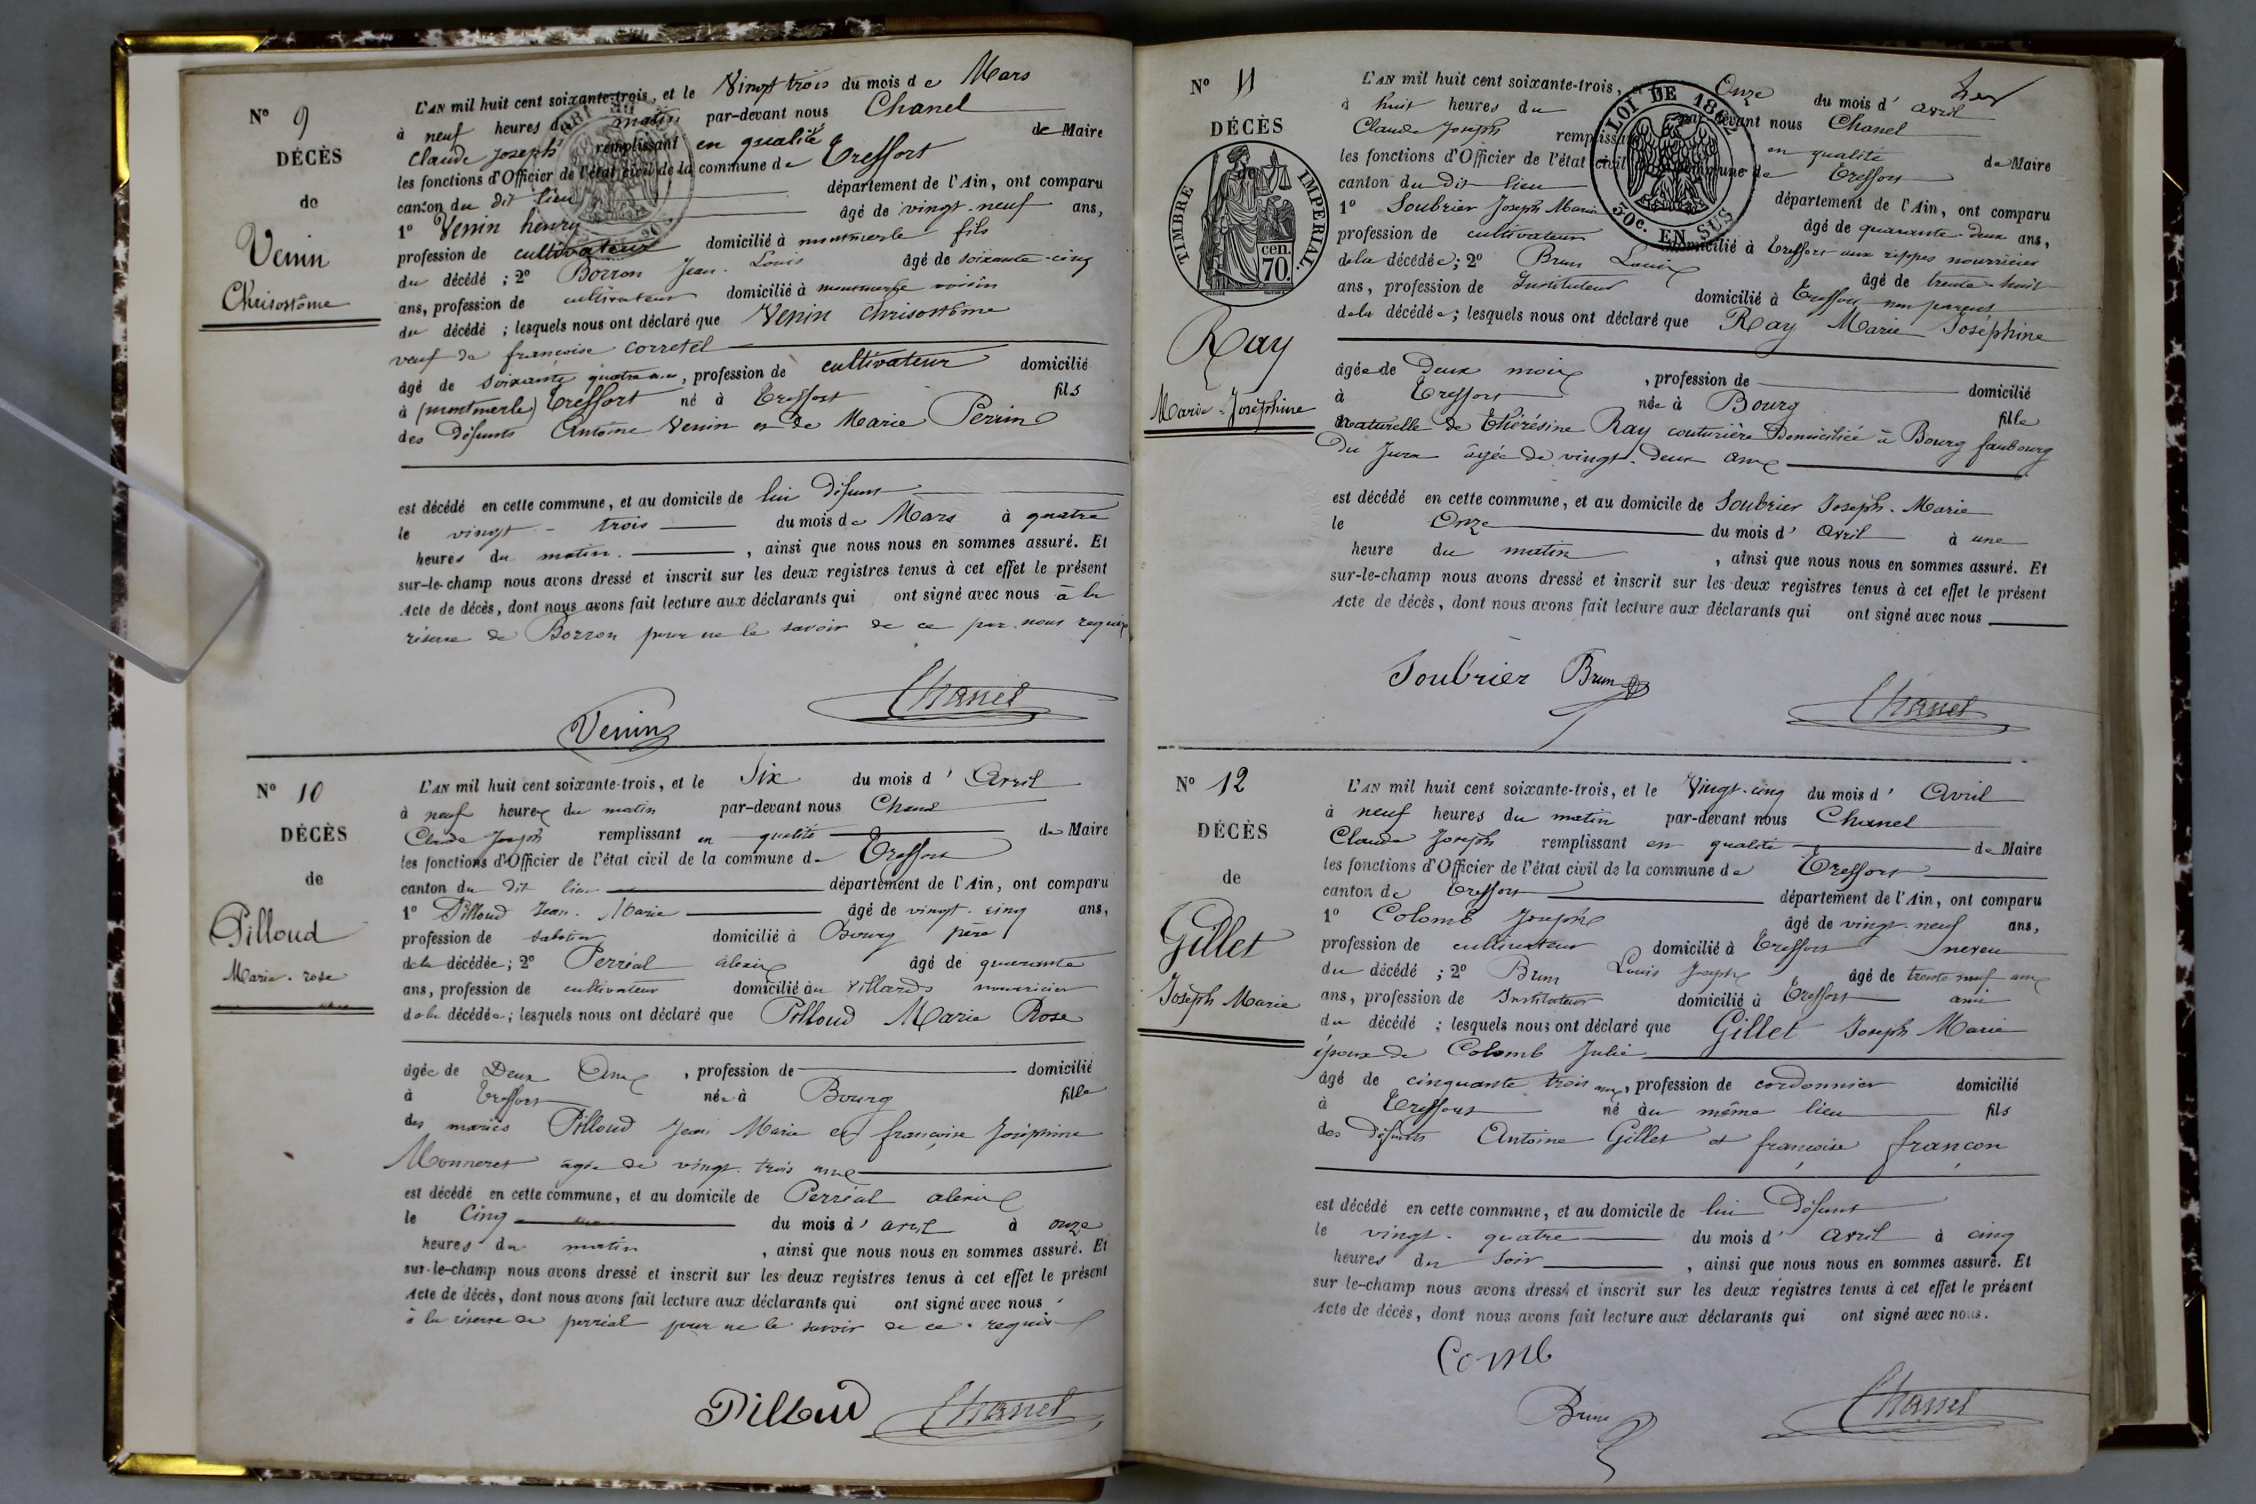 N° 9
DÉCÈS
de
Venin
Chrisostôme
L'AN mil huit cent soixante-trois, et le Vingt trois du mois de Mars
à neuf heures du matin par-devant nous Chanel
Claude Joseph remplissant en qualité de Maire
les fonctions d'Officier de l'état civil de la commune de Treffort
canton du dit lieu département de l'Ain, ont comparu
1° Venin henry âgé de vingt-neuf ans,
profession de cultivateur domicilié à montmerle fils
du décédé ; 2° Borron Jean-Louis âgé de soixante-cinq
ans, profession de cultivateur domicilié à montmerle voisin
du décédé ; lesquels nous ont déclaré que Venin Chrisostôme
veuf de françoise corretel
âgé de soixante quatre ans, profession de cultivateur domicilié
à (montmerle) Treffort né à Treffort fils
des défunts Antoine Venin et de Marie Perrin
est décédé en cette commune, et au domicile de lui défunt
le vingt-trois du mois de Mars à quatre
heures du matin, ainsi que nous nous en sommes assuré. Et
sur-le-champ nous avons dressé et inscrit sur les deux registres tenus à cet effet le présent
Acte de décès, dont nous avons fait lecture aux déclarants qui ont signé avec nous à la
réserve de Borron pour ne le savoir de ce par nous requis
Chanel
Venin
N° 10
DÉCÈS
de
Pilloud
Marie-rose
L'AN mil huit cent soixante-trois, et le Six du mois d'Avril
à neuf heures du matin par-devant nous Chanel
Claude Joseph remplissant en qualité de Maire
les fonctions d'Officier de l'état civil de la commune de Treffort
canton du dit lieu département de l'Ain, ont comparu
1° Pilloud Jean-Marie âgé de vingt-cinq ans,
profession de sabotier domicilié à Bourg père
de la décédée ; 2° Perréal alexis âgé de quarante
ans, profession de cultivateur domicilié au Villards nourricier
de la décédée ; lesquels nous ont déclaré que Pilloud Marie Rose
âgée de Deux Ans, profession de domicilié
à Treffort née à Bourg fille
des mariés Pilloud Jean Marie et françoise Joséphine
Monneret âgée de vingt-trois ans
est décédé en cette commune, et au domicile de Perréal alexis
le Cinq du mois d'avril à onze
heures du matin, ainsi que nous nous en sommes assuré. Et
sur-le-champ nous avons dressé et inscrit sur les deux registres tenus à cet effet le présent
Acte de décès, dont nous avons fait lecture aux déclarants qui ont signé avec nous
à la réserve de perréal pour ne le savoir de ce requis
Pilloud Chanel
N° 11
DÉCÈS
de
TIMBRE IMPÉRIAL.
70. cen.
Ray
Marie-Joséphine
LOI DE 1862
30c. EN SUS
L'AN mil huit cent soixante-trois, et le Onze du mois d'avril
à huit heures du par-devant nous Chanel
Claude Joseph remplissant en qualité de Maire
les fonctions d'Officier de l'état civil de la commune de Treffort
canton du dit lieu département de l'Ain, ont comparu
1° Soubrier Joseph Marie âgé de quarante-deux ans,
profession de cultivateur domicilié à Treffort aux rippes nourricier
de la décédée ; 2° Brun Louis âgé de trente-huit
ans, profession de Instituteur domicilié à Treffort non parent
de la décédée ; lesquels nous ont déclaré que Ray Marie Joséphine
âgée de Deux mois, profession de domicilié
à Treffort née à Bourg fille
naturelle de Thérésine Ray couturière Domiciliée à Bourg faubourg
du Jura âgée de vingt-deux ans
est décédé en cette commune, et au domicile de Soubrier Joseph-Marie
le Onze du mois d'avril à une
heure du matin, ainsi que nous nous en sommes assuré. Et
sur-le-champ nous avons dressé et inscrit sur les deux registres tenus à cet effet le présent
Acte de décès, dont nous avons fait lecture aux déclarants qui ont signé avec nous
Soubrier Brun
Chanel
N° 12
DÉCÈS
de
Gillet
Joseph Marie
L'AN mil huit cent soixante-trois, et le Vingt-cinq du mois d'Avril
à neuf heures du matin par-devant nous Chanel
Claude Joseph remplissant en qualité de Maire
les fonctions d'Officier de l'état civil de la commune de Treffort
canton de Treffort département de l'Ain, ont comparu
1° Colomb Joseph âgé de vingt-neuf ans,
profession de cultivateur domicilié à Treffort neveu
du décédé ; 2° Brun Louis Joseph âgé de trente neuf ans
ans, profession de Instituteur domicilié à Treffort ami
du décédé ; lesquels nous ont déclaré que Gillet Joseph Marie
époux de Colomb Julie
âgé de cinquante trois ans, profession de cordonnier domicilié
à Treffort né au même lieu fils
des défunts Antoine Gillet et françoise françon
est décédé en cette commune, et au domicile de lui Défunt
le vingt-quatre du mois d'avril à cinq
heures du Soir, ainsi que nous nous en sommes assuré. Et
sur le-champ nous avons dressé et inscrit sur les deux registres tenus à cet effet le présent
Acte de décès, dont nous avons fait lecture aux déclarants qui ont signé avec nous.
Comb
Brun
Chanel